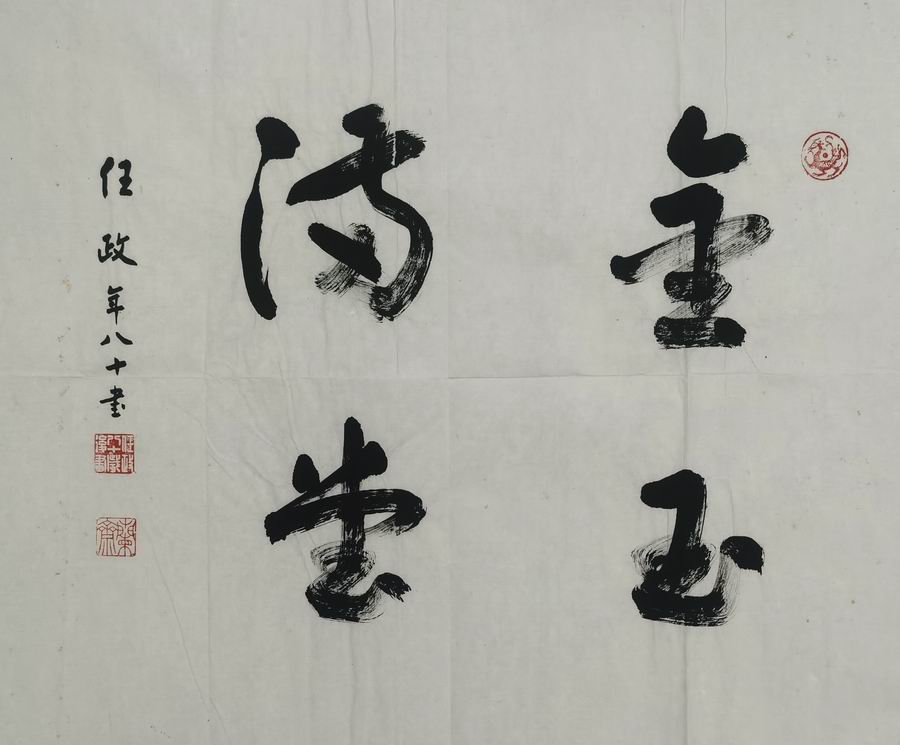 金玉
满堂
任政年八十書